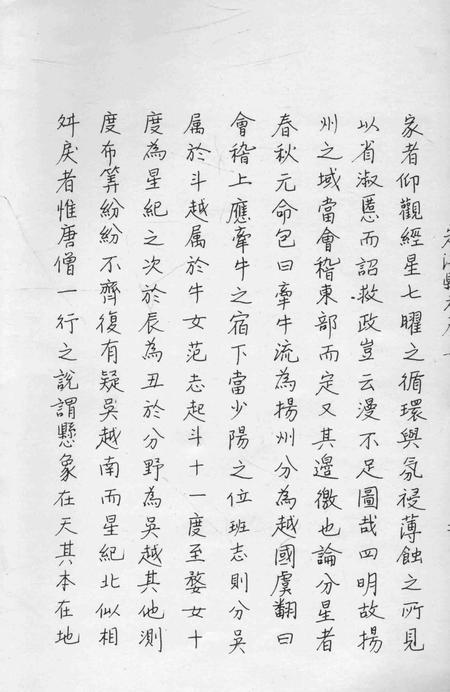 家者仰觀經星七曜之循環與氛祲薄蝕之所見
以省淑慝而詔救政豈云漫不足圖哉四明故揚
州之域當會稽東部而定又其邊徼也論分星者
春秋元命包曰牽牛流為揚州分為越國虞翻曰
會稽上應牽牛之宿下當少陽之位班志則分吳
属於斗越属於牛女范志起斗十一度至婺女十
度為星紀之次於辰為丑於分野為吳越其他測
度布筭紛紛不齊復有疑吳越南而星紀北似相
舛戾者惟唐僧一行之說謂懸象在天其本在地